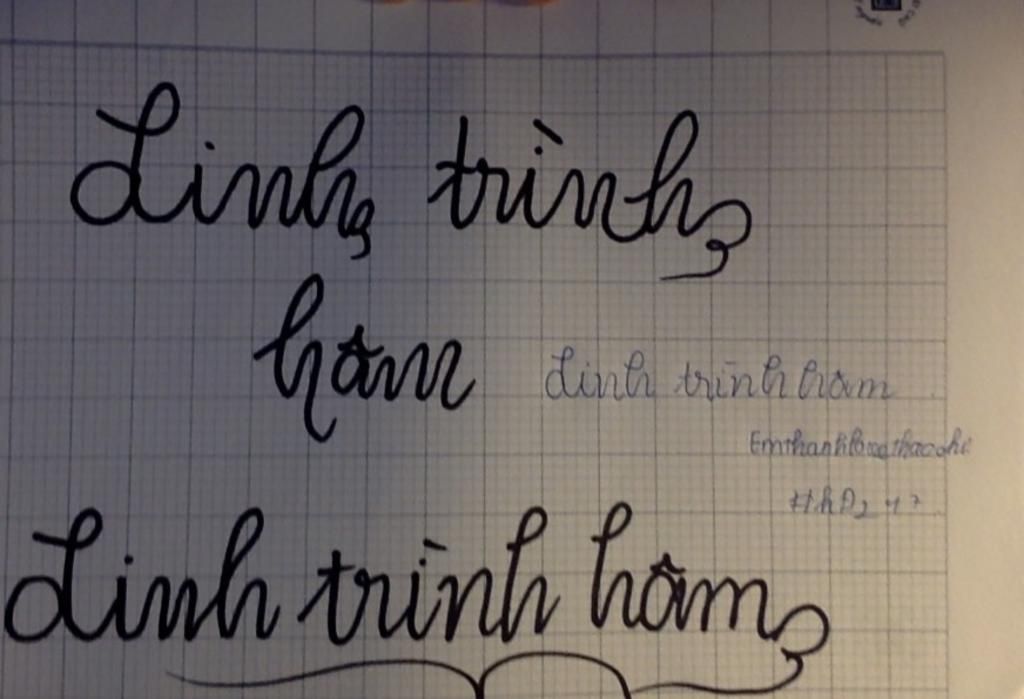 Linh trình
hâm
Linh trình hâm
Linh trình hâm